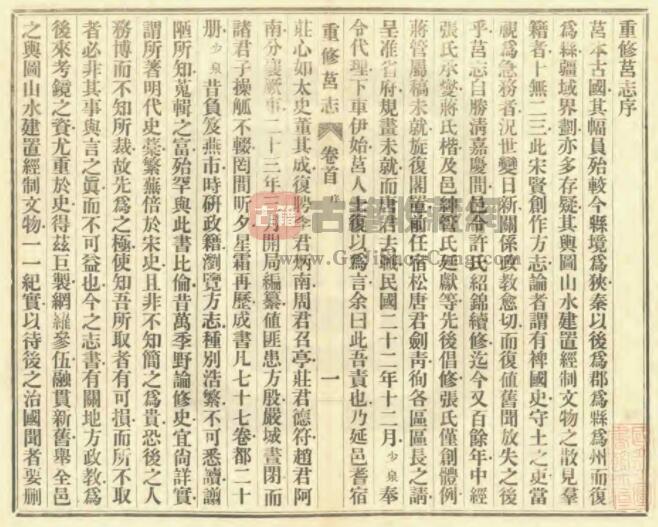 重修莒志序
莒本古國其幅員殆較今縣境為狹秦以後為郡為縣為州而復
為縣疆域界劃亦多存疑其輿圖山水建置經制文物之散見羣
籍者十無二三此宋賢創作方志論者謂有裨國史守土之吏當
視為急務者況世變日新關係政教愈切而復值舊聞放失之後
乎莒志自勝清嘉慶間邑令許氏紹錦續修迄今又百餘年中經
張氏承燮蔣氏楷及邑紳管氏廷獻等先後倡修張氏僅創體例
蔣管屬稿未就旋復閣置前任宿松唐君劍青徇各區區長之請
呈准省府規畫未就而唐君去職民國二十二年十二月少泉奉
令代理下車伊始莒人士復以為言余曰此吾責也乃延邑耆宿
重修莒志
卷首
序
一
莊心如太史董其成復聘李君炳南周君召亭莊君德符趙君阿
南分襄厥事二十三年三月開局編纂值匪患方殷嚴城晝閉而
諸君子操觚不輟罔間昕夕星霜再歷成書凡七十七卷都二十
册少泉昔負笈燕市時研政籍瀏覽方志種別浩繁不可悉讀謭
陋所知蒐輯之富殆罕與此書比倫昔萬季野論修史宜尚詳實
謂所著明代史藁繁蕪倍於宋史且非不知簡之為貴恐後之人
務博而不知所裁故先為之極使知吾所取者有可損而所不取
者必非其事與言之眞而不可益也今之志書有關地方政教為
後來考鏡之資尤重於史得茲巨製網羅參伍融貫新舊舉全邑
之輿圖山水建置經制文物一一紀實以待後之治國聞者要刪
古籍